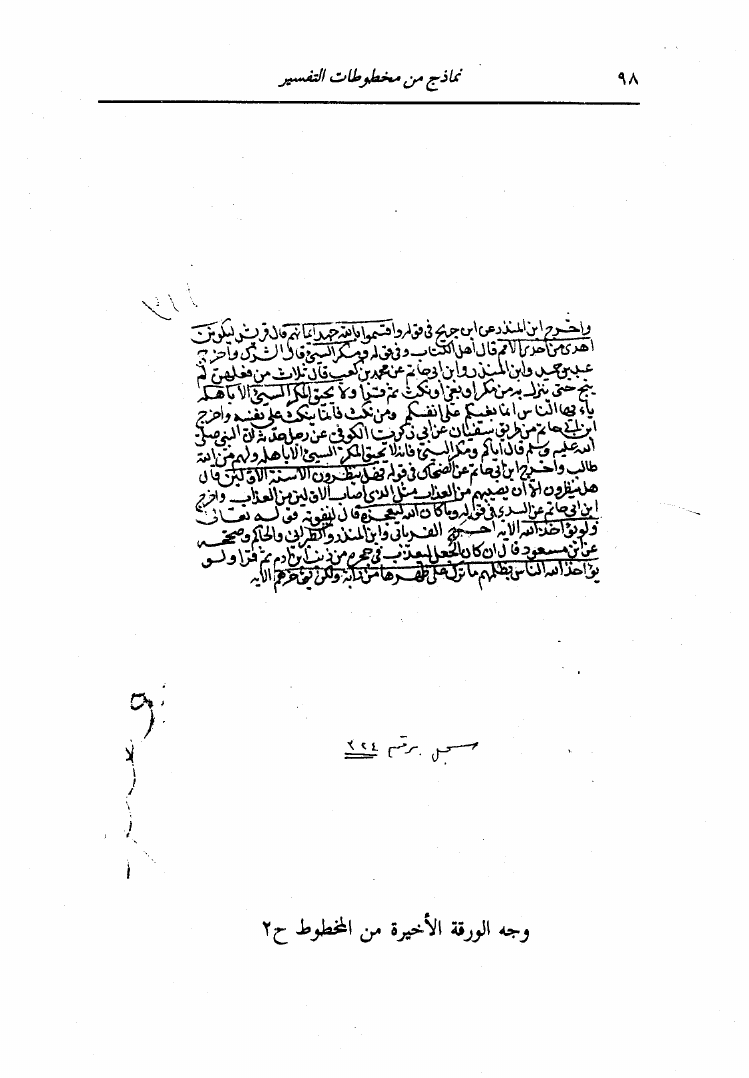 ٩٨
نماذج من مخطوطات التفسير
واخرج ابن المنذر عن ابن جريج في قوله واقسموا بالله جهد ايمانهم قال قريش ليكونن
اهدى من احدى الامم قال اهل الكتاب وفي قوله ومكر السيئ قال الشرك واخرج
عبد بن حميد وابن المنذر وابن ابي حاتم عن محمد بن كعب قال ثلاث من فعلهن لم
ينج حتى ينزل به من مكر او بغى او نكث ثم قرا ولا يحيق المكر السيئ الا باهله
يا ءيها الناس انما بغيكم على انفسكم ومن نكث فانما ينكث على نفسه واخرج
ابن ابي حاتم من طريق سفيان عن ابي زكريا الكوفي عن رجل حدثه ان النبي صلى
الله عليه وسلم قال اياكم ومكر السيئ فانه لا يحيق المكر السيئ الا باهله ولهم من الله
طالب واخرج ابن ابي حاتم عن الضحاك في قوله فهل ينظرون الا سنة الاولين قال
هل ينظرون الا ان يصيبهم من العذاب مثل الذي اصاب الاولين من العذاب واخرج
ابن ابي حاتم عن السدي في قوله وما كان الله ليعجزه قال ليفوته قوله تعالى
ولو يؤاخذ الله الايه اخرج الفريابي وابن المنذر والطبراني والحاكم وصححه
عن ابن مسعود قال ان كان الجعل ليعذب في جحره من ذنب ابن ادم ثم قرا ولو
يؤاخذ الله الناس بظلمهم ما ترك على ظهرها من دابة ولكن يؤخرهم الايه
سجل برقم ٣٢٤
وجه الورقة الأخيرة من المخطوط ح٢